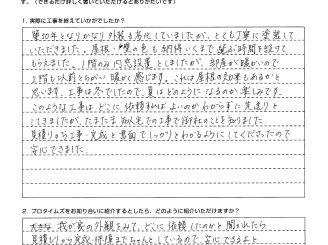 す。（できるだけ詳しく書いていただけるとありがたいです）
1. 実際に工事を終えていかがでしたか？
築10年となりかなり外装も劣化していましたが、とても丁寧に塗装して
いただきました。屋根・壁の色も納得いくまで選ぶ時間を設けて
もらえました。1階のみ内窓設置としましたが、部屋が暖かいので
2階も以前とちがい暖かく感じます。これは屋根の効果もあるかと
思います。工事は冬でしたので、夏はどのようになるのか楽しみです。
このような工事は、どこに依頼すればよいのかわからずに先送りと
してきましたが、たまたま知人宅の工事で御社のことを知りました。
見積りから工事・完成と書面でしっかりとわかるようにしてくださったので
安心できました。
2. プロタイムズをお知り合いに紹介するとしたら、どのように紹介いただけますか？
我が家の外観をみて、どこに依頼したのかと聞かれたら
見積りから完成、保障までちゃんとしているので、安心できるよと